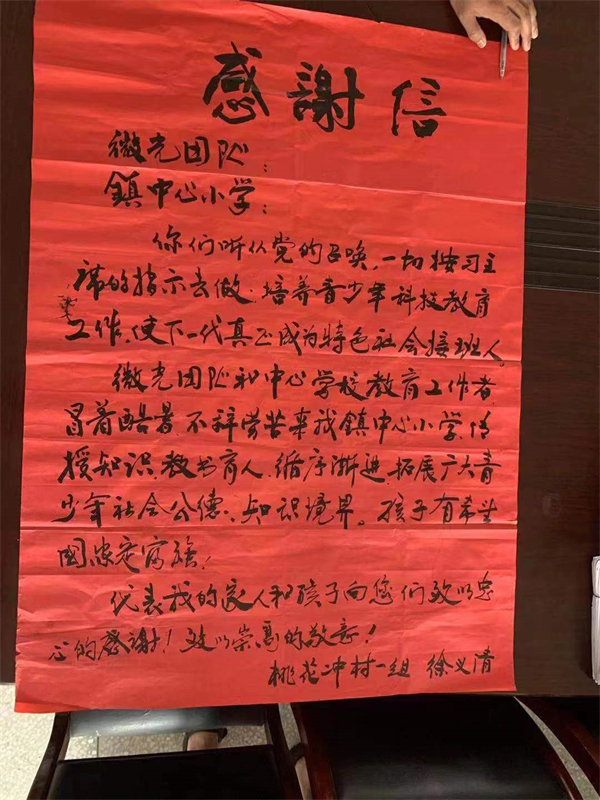 感謝信
微光团队:
鎮中心小学:
你们听从党的召唤,一切按习主
席的指示去做.培养青少年科技教育
工作,使下一代真正成为特色社会接班人。
微光团队和中心学校教育工作者,
冒着酷暑,不辞劳苦来我鎮中心小学,传
授知识,教书育人,循序渐进,拓展广大青
少年社会公德、知识境界。孩子有希望
國家定富強!
代表我的家人和孩子向您们致以忠
心的感謝!致以崇高的敬意!
桃花冲村一组 徐义清